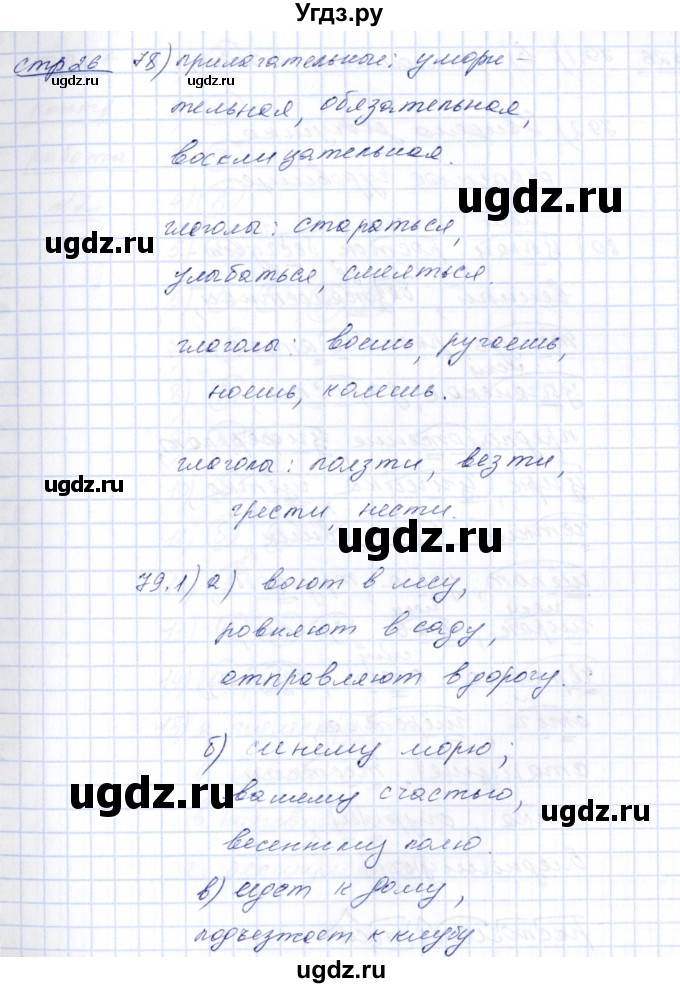 Угдз.ру
стр 26 78) прилагательные: умори-
тельная, обязательная,
восклицательная.
ugdz.ru
ugdz.ru
глаголы: стараться,
улыбаться, смеяться.
глаголы: воешь, ругаешь,
ноешь, колешь.
глаголы: ползти, везти,
ugdz.ru
грести, нести.
ugdz.ru
79.1) а) воют в лесу,
ровняют в саду,
отправляют в дорогу.
б) синему морю;
ugdz.ru
вашему счастью,
ugdz.ru
весеннему полю.
в) едет к дому,
подъезжает к клубу
ugdz.ru